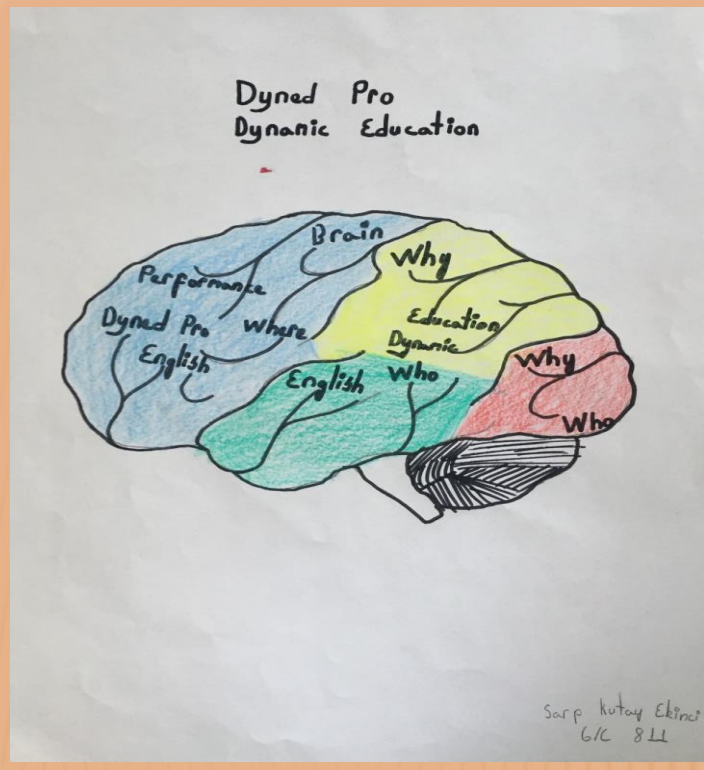 Dyned Pro
Dynamic Education
Brain
Performance
Dyned Pro
Where
English
Why
Education
Dynamic
English
Who
Why
Who
Sarp Kutay Ekinci
6/C 811